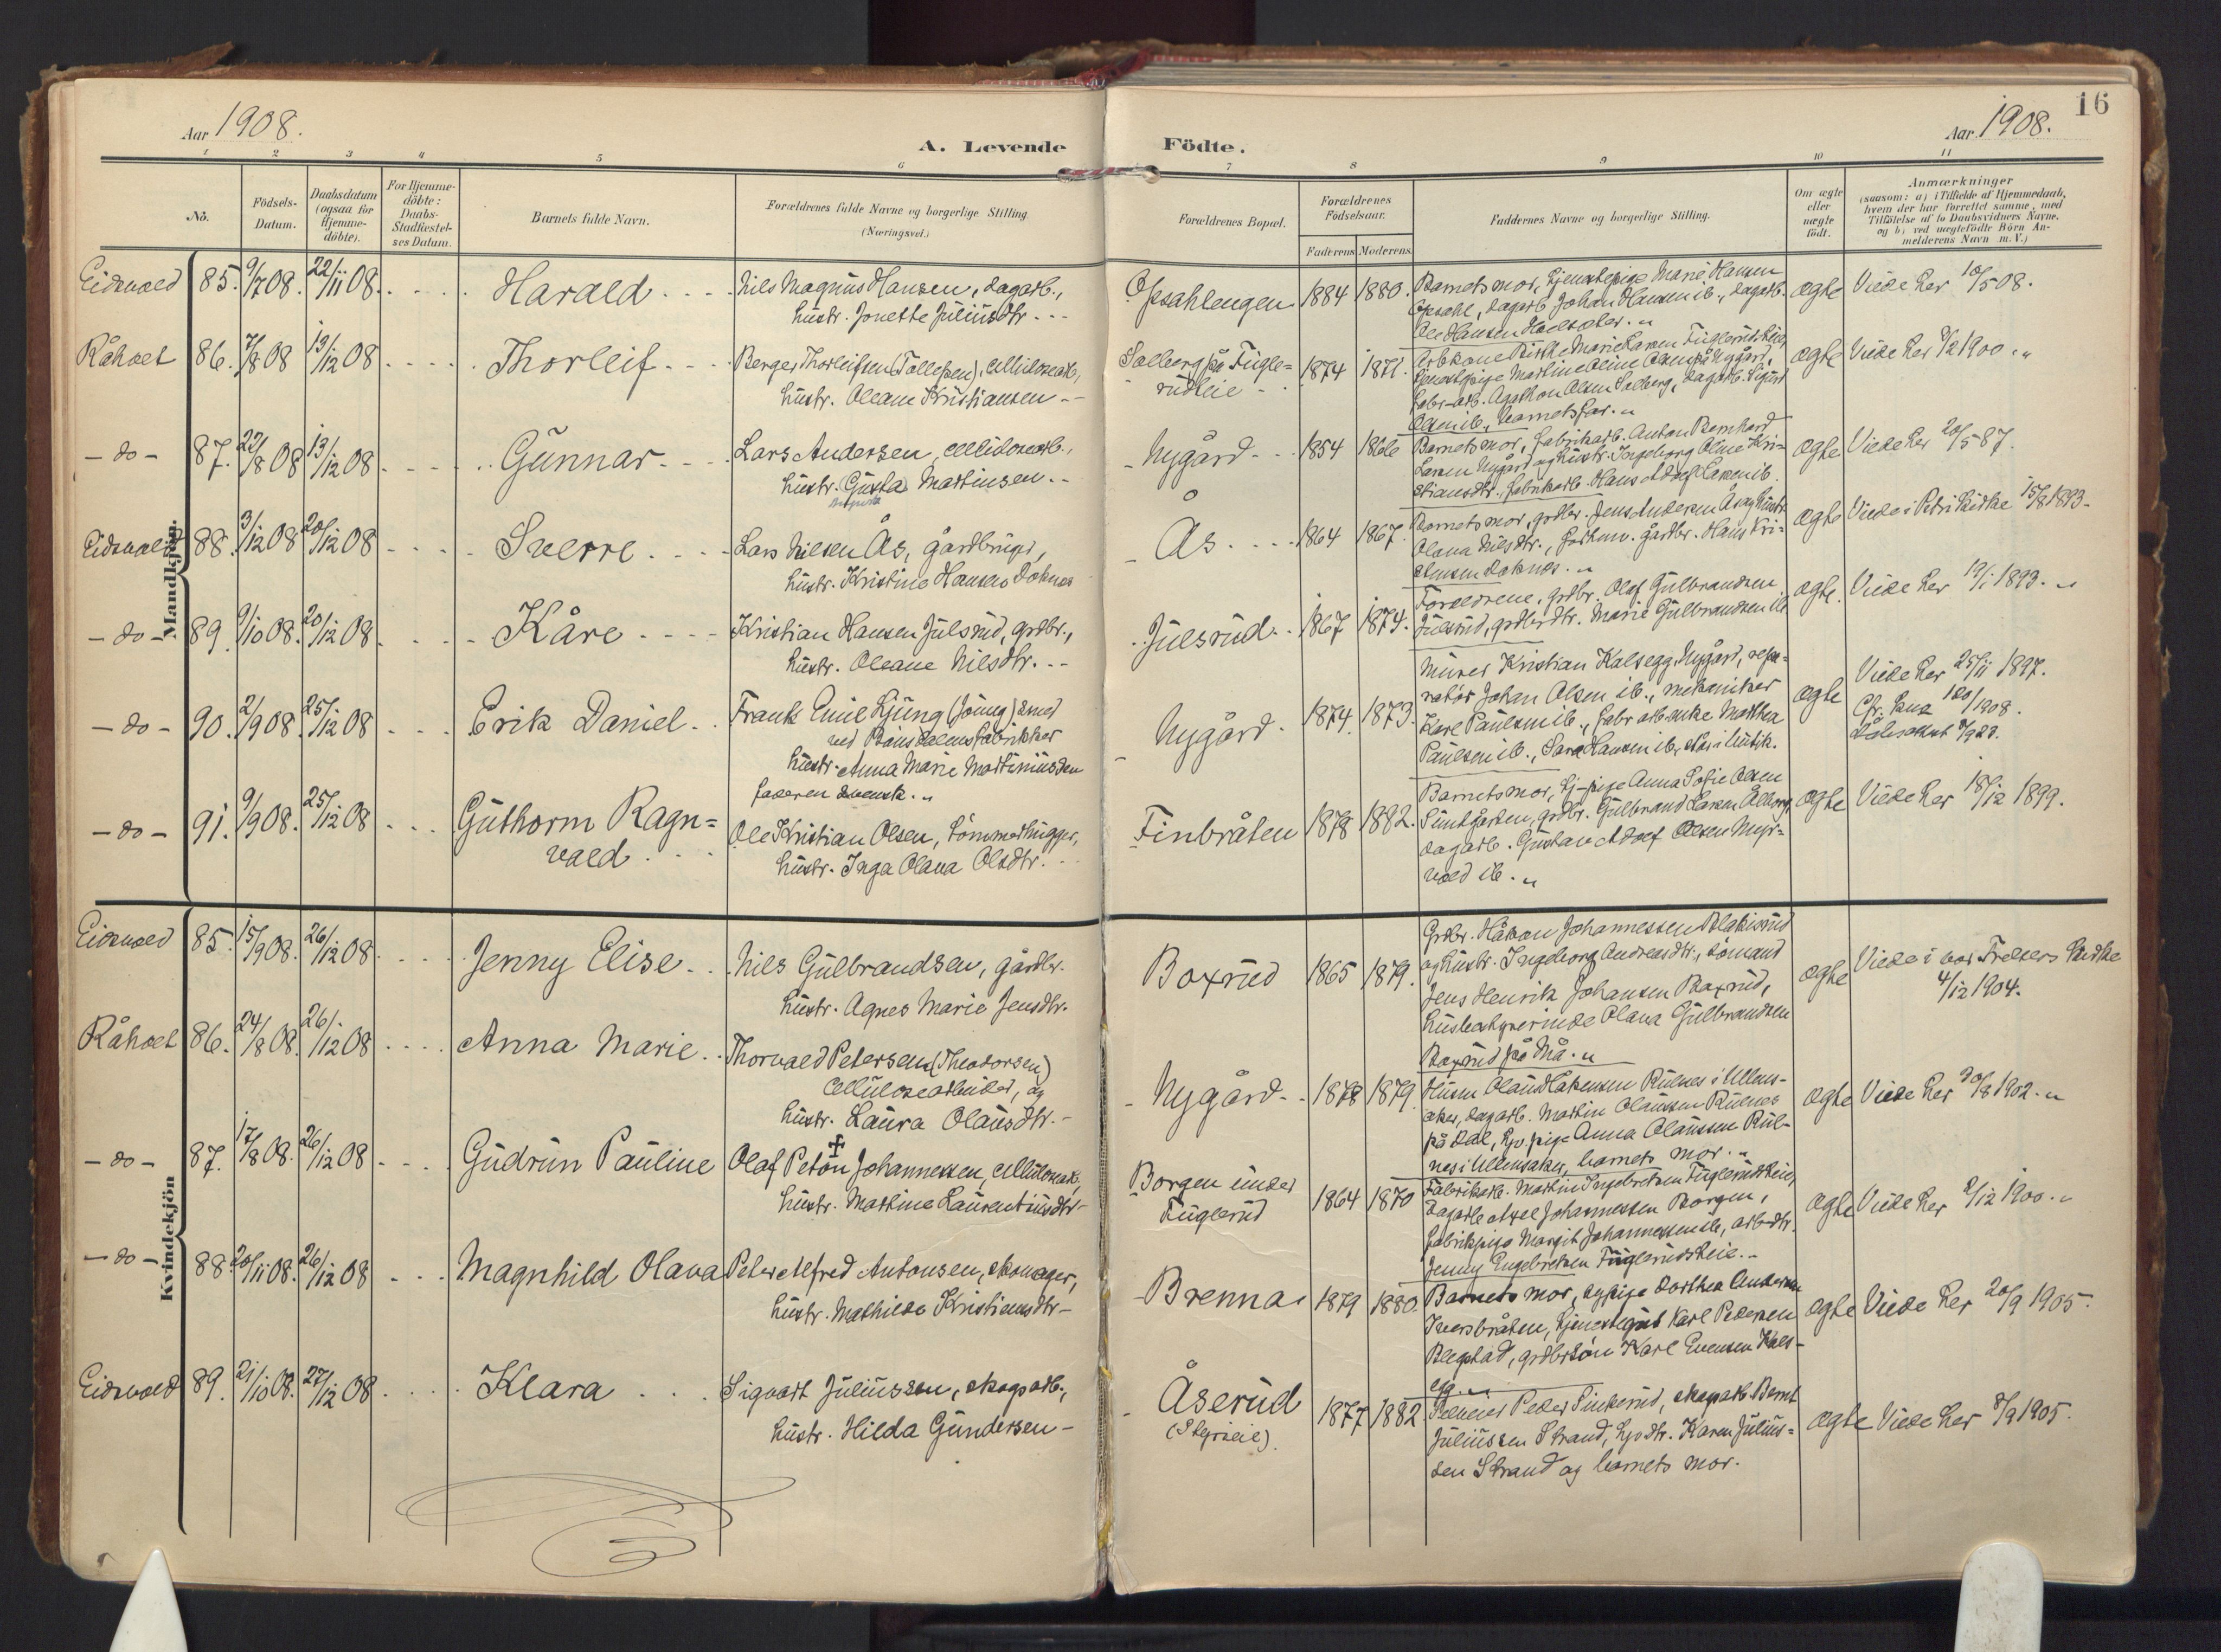 Aar 1908.
A. Levende
Födte.
Aar 1908.
16
1 2 3 4 5 6 7 8 9 10 11
No.
Födsels-
Datum.
Daabsdatum
(ogsaa for
Hjemme-
döbte).
For Hjemme-
döbte:
Daabs-
Stadfæstel-
ses Datum.
Barnets fulde Navn.
Forældrenes fulde Navne og borgerlige Stilling
(Næringsvei.)
Forældrenes Bopæl.
Forældrenes
Födselsaar.
Faderens
Moderens
Faddernes Navne og borgerlige Stilling.
Om ægte
eller
uægte
födt.
Anmærkninger
(saasom: a) i Tilfælde af Hjemmedaab,
hvem der har forrettet samme, med
Tilföielse af to Daabsvidners Navne,
og b) ved uægtefödte Börn An-
melderens Navn m. V.)
Mandkjön.
Eidsvold 85. 9/7 08. 22/11 08. Harald
Nils Magnus Hansen, dagarb.,
hustr. Jonette Juliusdtr.
Opsahlengen 1884 1880.
Barnets mor, tjenestepige Marie Hansen
Opsahl, dagarb. Johan Hansen ib., dagarb.
Ole Hansen
ægte Viede her 10/5 08.
Råholt 86. 7/8 08 13/12 08 Thorleif
Berger Thorleifsen (Tollefsen), cellulosearb.,
hustr. Oleane Kristiansen
Solberg på Fugle-
rudeie 1874 1871.
Marie Larsen Fuglerudeie,
tjenestepige Martine Oline Olsen på Nygård,
fabr-arb. Agathon Olsen Solberg, dagarb. Sigurd
Olsen ib., barnets far.
ægte Viede her 2/12 1900.
- do - 87. 22/8 08 13/12 08 Gunnar
Lars Andersen, cellulosearb.,
hustr. Gusta Martinsen
Nygård 1854 1866
Barnets mor, fabrikarb. Anton Bernhard
Larsen Nygård og hustr. Ingeborg Oline Kri-
stiansdtr., fabrikarb. Hans Adolf Larsen ib.
ægte Viede her 20/5 87.
Eidsvold 88. 3/12 08 20/12 08 Sverre
Lars Nilsen Ås, gårdbruger,
hustr. Kristine Hansen Doknes
Ås 1864 1867.
Barnets mor, grdbr. Jens Andersen Ås og hustr.
Olava Nilsdtr., forhenv. gårdbr. Hans Kri-
stensen Doknes.
ægte Viede i Petri Kirke 15/8 1893.
- do - 89. 9/10 08. 20/12 08 Kåre
Kristian Hansen Julsrud, grdbr.,
hustr. Oleane Nilsdtr.
Julsrud 1867 1874.
Forældrene, grdbr. Olaf Gulbrandsen
Julsrud, grdbrdtr. Marie Gulbrandsen ib.
ægte. Viede her 19/1 1893.
- do - 90. 2/9 08. 25/12 08 Erik Daniel
Frank Emil Ljung (Jöung) smed
ved Bönsdalens fabrikker
hustr. Anna Marie Martiniusden
faderen svensk.
Nygård 1874. 1873.
Murer Kristian Kalsegg Nygård, repa-
ratör Johan Olsen ib., mekaniker
Karl Paulsen ib., fabr arb enke Marthea
Paulsen ib., Sara Hansen ib.
ægte Viede her 25/11 1897.
- do - 91. 9/9 08. 25/12 08 Guthorm Ragn-
vald
Ole Kristian Olsen, tömmerhugger,
hustr. Inga Olava Olsdtr.
Finbråten 1878 1882.
Barnets mor, tj-pige Anna Sofie Olsen
grdbr. Gulbrand Larsen
dagarb. Gustav Adolf Olsen Myr-
vold ib.
ægte Viede her 18/12 1899.
Kvindekjön
Eidsvold 85. 15/9 08. 26/12 08 Jenny Elise
Nils Gulbrandsen, gårdbr.
hustr. Agnes Marie Jensdtr.
Boxrud 1865 1879.
Grdbr. Håkon Johannessen Blakisrud
og hustr. Ingeborg Andreasdtr., sömand
Jens Henrik Johansen Boxrud,
husbestyrerinde Olava Gulbrandsen
Boxrud på Nå.
ægte Viede i vor Frelsers Kirke
4/12 1904.
Råholt 86. 24/8 08. 26/12 08 Anna Marie
Thorvald Petersen (Theodorsen)
cellulosearbeider, og
hustr. Laura Olausdtr.
Nygård 1878 1879
Husm Olaus Håkensen Rulnes i Ullens-
aker, dagarb. Martin Olaussen Rulnes
på Dal, tjv.pige Anna Olaussen Rul-
nes i Ullensaker, barnets mor.
ægte Viede her 30/8 1902.
- do - 87. 17/8 08. 26/12 08 Gudrun Pauline
Olaf Peton Johannessen, cellulosearb.,
hustr. Martine Laurentiusdtr.
Borgen under
Fuglerud 1864 1870
Fabrikarb. Martin Ingebretsen Fuglerudeie,
dagarb. Axel Johannessen Borgen,
fabrikpige Margit Johannessen ib., arb-dtr.
Jenny Engebretsen Fuglerudseie.
ægte Viede her 2/12 1900.
- do - 88. 20/11 08. 26/12 08 Magnhild Olava
Peter Alfred Antonsen, skomager,
hustr. Mathilde Kristiansdtr
Brenna 1879 1880.
Barnets mor, sypige Dorthea Andersen
Iversbråten, tjenestegut Karl Pedersen
Blegstad, grdbrsön Karl Evensen Kals-
egg.
ægte Viede her 20/9 1905.
Eidsvold 89. 21/10 08. 27/12 08 Klara
Sigvart Juliussen, skogsarb.,
hustr. Hilda Gundersen
Åserud
(Styrieie). 1877 1882
Peder Finkerud, skogsarb. Bernt
Juliussen Strand, tjv dtr. Karen Julius-
sen Strand og barnets mor.
ægte Viede her 8/9 1905.